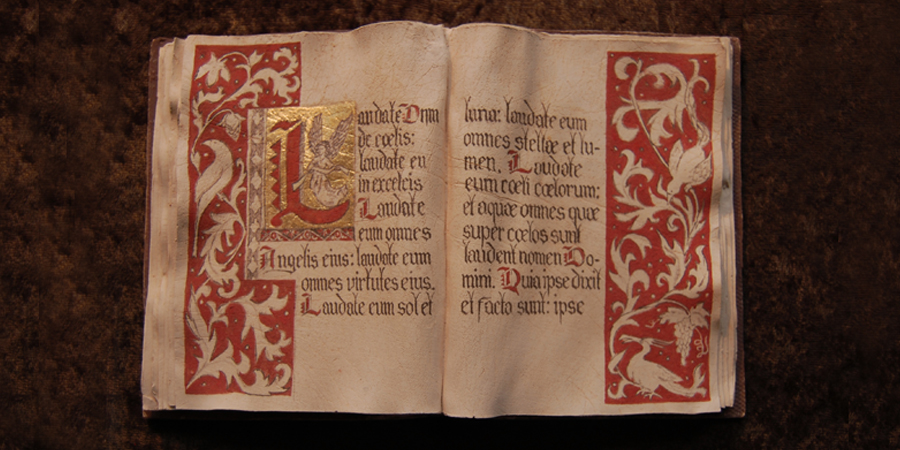 Laudate Dnm
de cœlis:
laudate eu
in excelcis
Laudate
eum omnes
Angelis eius: laudate eum
omnes virtutes eius.
Laudate eum sol et
luna: laudate eum
omnes stellæ et lu-
men. Laudate
eum cœli cœlorum:
et aquæ omnes quæ
super cœlos sunt
laudent nomen Do-
mini. Quia ipse dixit
et facto sunt: ipse